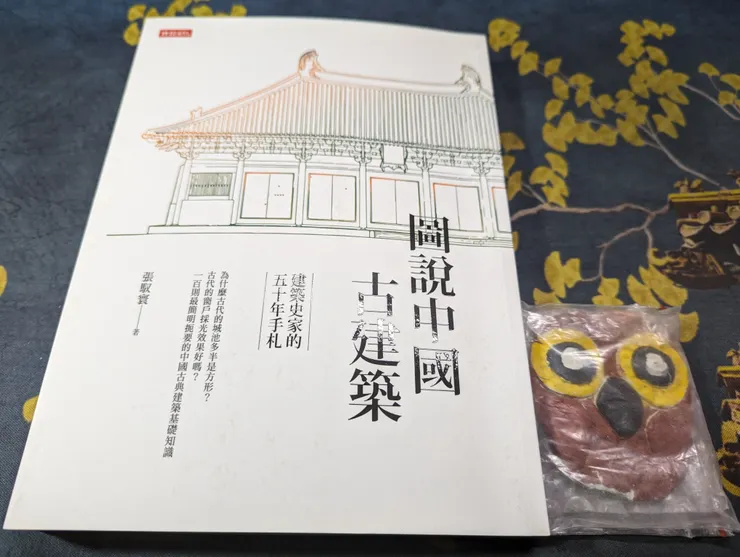 圖說中國
古建築
建築史家的
五十年手札
為什麼古代的城池多半是方形？
古代的窗戶採光效果好嗎？
一百則最簡明扼要的中國古典建築基礎知識
張馭寰——著